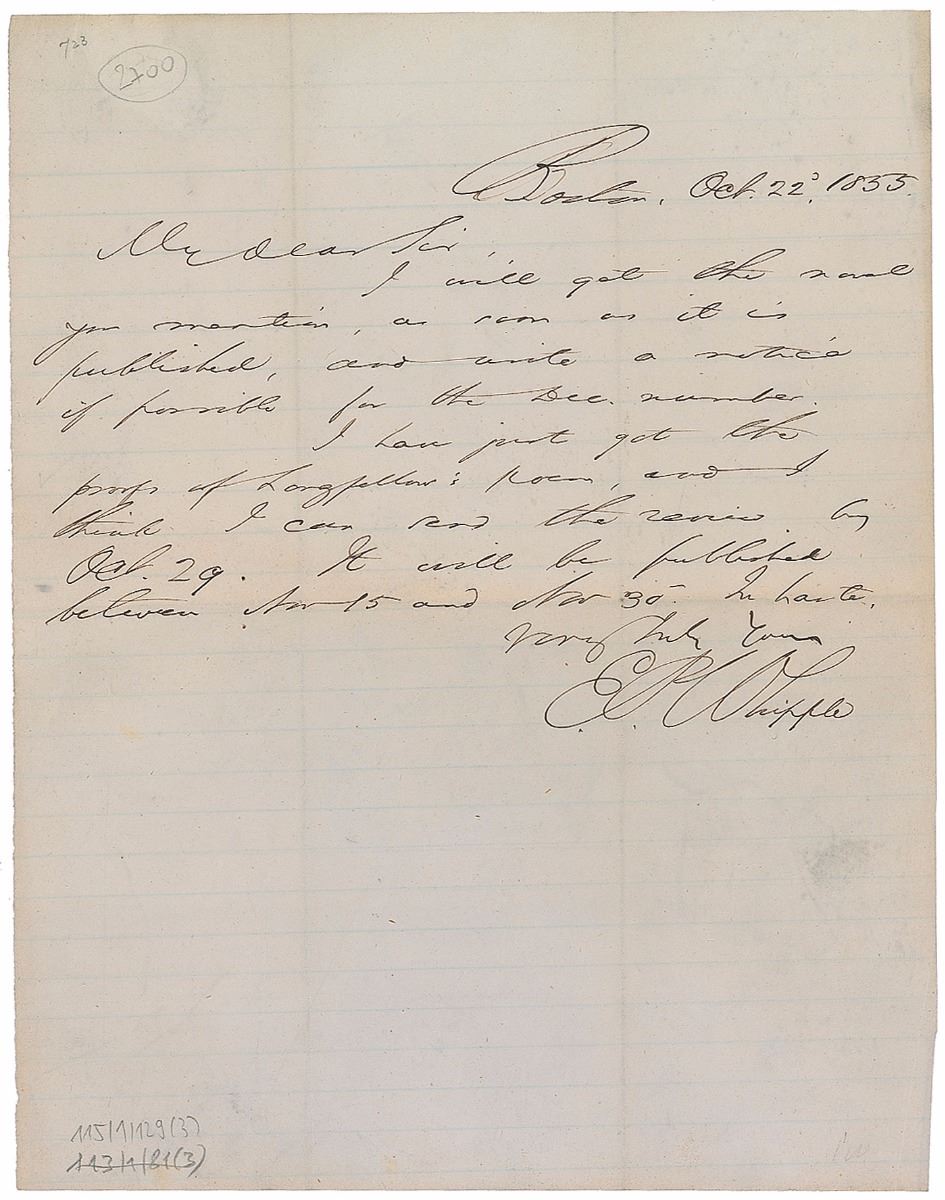 723
2700
Boston, Oct. 22d, 1855.
My dear Sir,
I will get the novel
you mention, as soon as it is
published, and write a notice
if possible for the Dec. number.
I have just got the
proofs of Longfellow's poem, and I
think I can send the review by
Oct. 29. It will be published
between Nov 15 and Nov 30. In haste,
Very truly Yours
E. P. Whipple
115/1/129(3)
113/1/81(3)